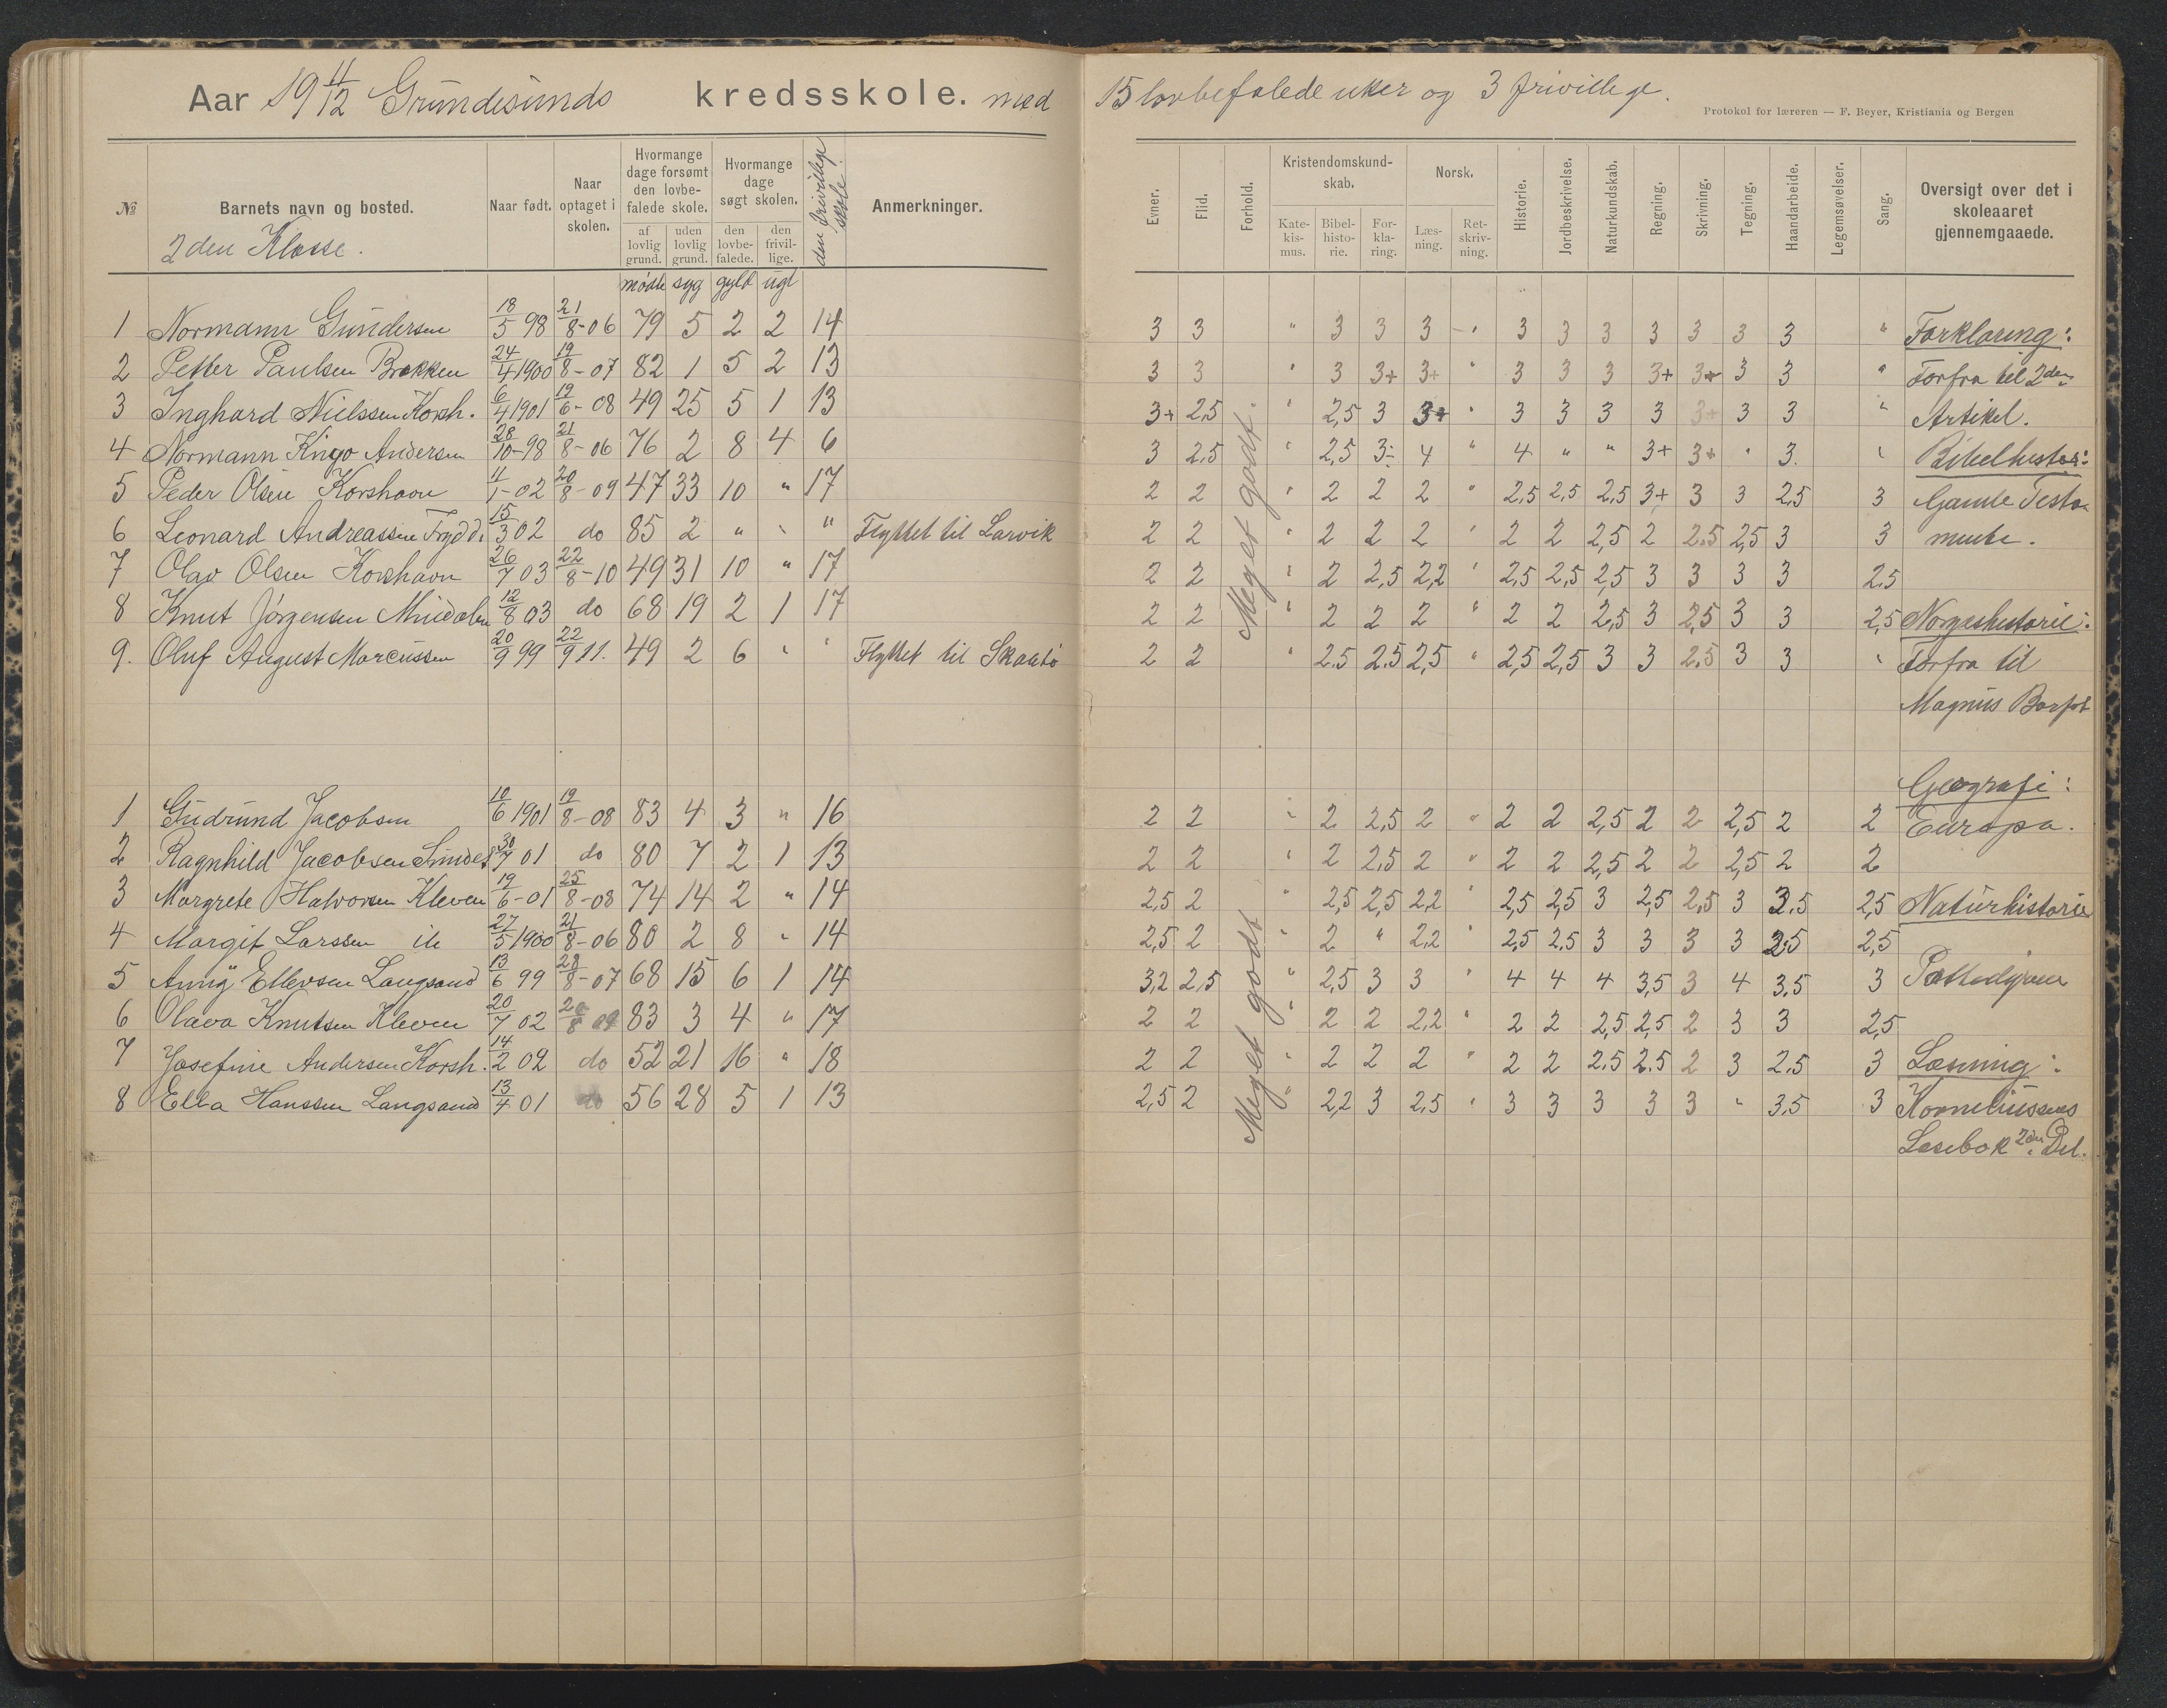 Aar 19 11/12 Grundesunds kredsskole. med 15 lovbefalede uker og 3 frivillige.
Protokol for læreren — F. Beyer, Kristiania og Bergen
№ Barnets navn og bosted. Naar født. Naar optaget i skolen. Hvormange dage forsømt den lovbefalede skole. af lovlig grund. uden lovlig grund. Hvormange dage søgt skolen. den lovbefalede. den frivillige. den frivillige skole. Anmerkninger.
Evner. Flid. Forhold. Kristendomskundskab. Katekismus. Bibelhistorie. Forklaring. Norsk. Læsning. Retskrivning. Historie. Jordbeskrivelse. Naturkundskab. Regning. Skrivning. Tegning. Haandarbeide. Legemsøvelser. Sang. Oversigt over det i skoleaaret gjennemgaaede.
2den Klasse.
mødte syg gyld ugl
1 Normann Gundersen 18/5 98 21/8-06 79 5 2 2 14 3 3 " 3 3 3 " 3 3 3 3 3 3 3 " Forklaring:
2 Petter Paulsen Brekken 24/4 1900 19/8-07 82 1 5 2 13 3 3 " 3 3+ 3+ " 3 3 3 3+ 3+ 3 3 " Forfra til 2den
3 Inghard Nielssen Korsh. 6/4 1901 19/6-08 49 25 5 1 13 3+ 2,5 " 2,5 3 3+ " 3 3 3 3 3+ 3 3 " Artikel.
4 Normann Kingo Andersen 28/10-98 21/8-06 76 2 8 4 6 3 2,5 " 2,5 3- 4 " 4 " " 3+ 3+ " 3. " Bibelhistor:
5 Peder Olsen Korshavn 4/1-02 20/8-09 47 33 10 " 17 2 2 " 2 2 2 " 2,5 2,5 2,5 3+ 3 3 2,5 3 Gamle Testa
6 Leonard Andreassen 15/3 02 do 85 2 " " " Flyttet til Larvik 2 2 " 2 2 2 " 2 2 2,5 2 2.5 2,5 3 3 mente.
7 Olav Olsen Korshavn 26/7 03 22/8-10 49 31 10 " 17 2 2 " 2 2,5 2,2 " 2,5 2,5 2,5 3 3 3 3 2.5
8 Knut Jørgensen 12/8 03 do 68 19 2 1 17 2 2 " 2 2 2 " 2 2 2,5 3 2,5 3 3 2,5 Norgeshistorie:
9. Oluf August Marcussen 20/9 99 22/9 11. 49 2 6 " " Flyttet til Skaatø 2 2 " 2.5 2.5 2,5 " 2,5 2,5 3 3 2.5 3 3 " Forfra til
Meget godt.
Magnus Barfot
Geografi:
1 Gudrund Jacobsen 10/6 1901 19/8-08 83 4 3 " 16 2 2 " 2 2,5 2 " 2 2 2,5 2 2 2,5 2 2 Europa.
2 Ragnhild Jacobsen 30/7 01 do 80 7 2 1 13 2 2 " 2 2,5 2 " 2 2 2,5 2 2 2,5 2 2
3 Margrete Halvorsen Kleven 19/6-01 25/8-08 74 14 2 " 14 2,5 2 " 2,5 2,5 2,2 " 2,5 2,5 3 2,5 2,5 3 3.5 2,5 Naturhistorie
4 Margit Larssen 27/5 1900 21/8-06 80 2 8 " 14 2,5 2 " 2 " 2,2 " 2,5 2,5 3 3 3 3 3.5 2,5
5 Anny Ellevsen Langsand 13/6 99 28/8-07 68 15 6 1 14 3,2 2,5 " 2,5 3 3 " 4 4 4 3,5 3 4 3,5 3 Pattedyrene
6 Olava Knutsen Kleven 20/7 02 20/8 09 83 3 4 " 17 2 2 " 2 2 2,2 " 2 2 2,5 2,5 2 3 3 2,5
7 Josefine Andersen Korsh. 14/2 02 do 52 21 16 " 18 2 2 " 2 2 2 " 2 2 2.5 2.5 2 3 2.5 3 Læsning:
8 Ella Hanssen Langsand 13/4 01 do 56 28 5 1 13 2,5 2 " 2,2 3 2,5 " 3 3 3 3 3 " 3.5 3 Korneliussens
Meget godt
Læsebok 2den Del.